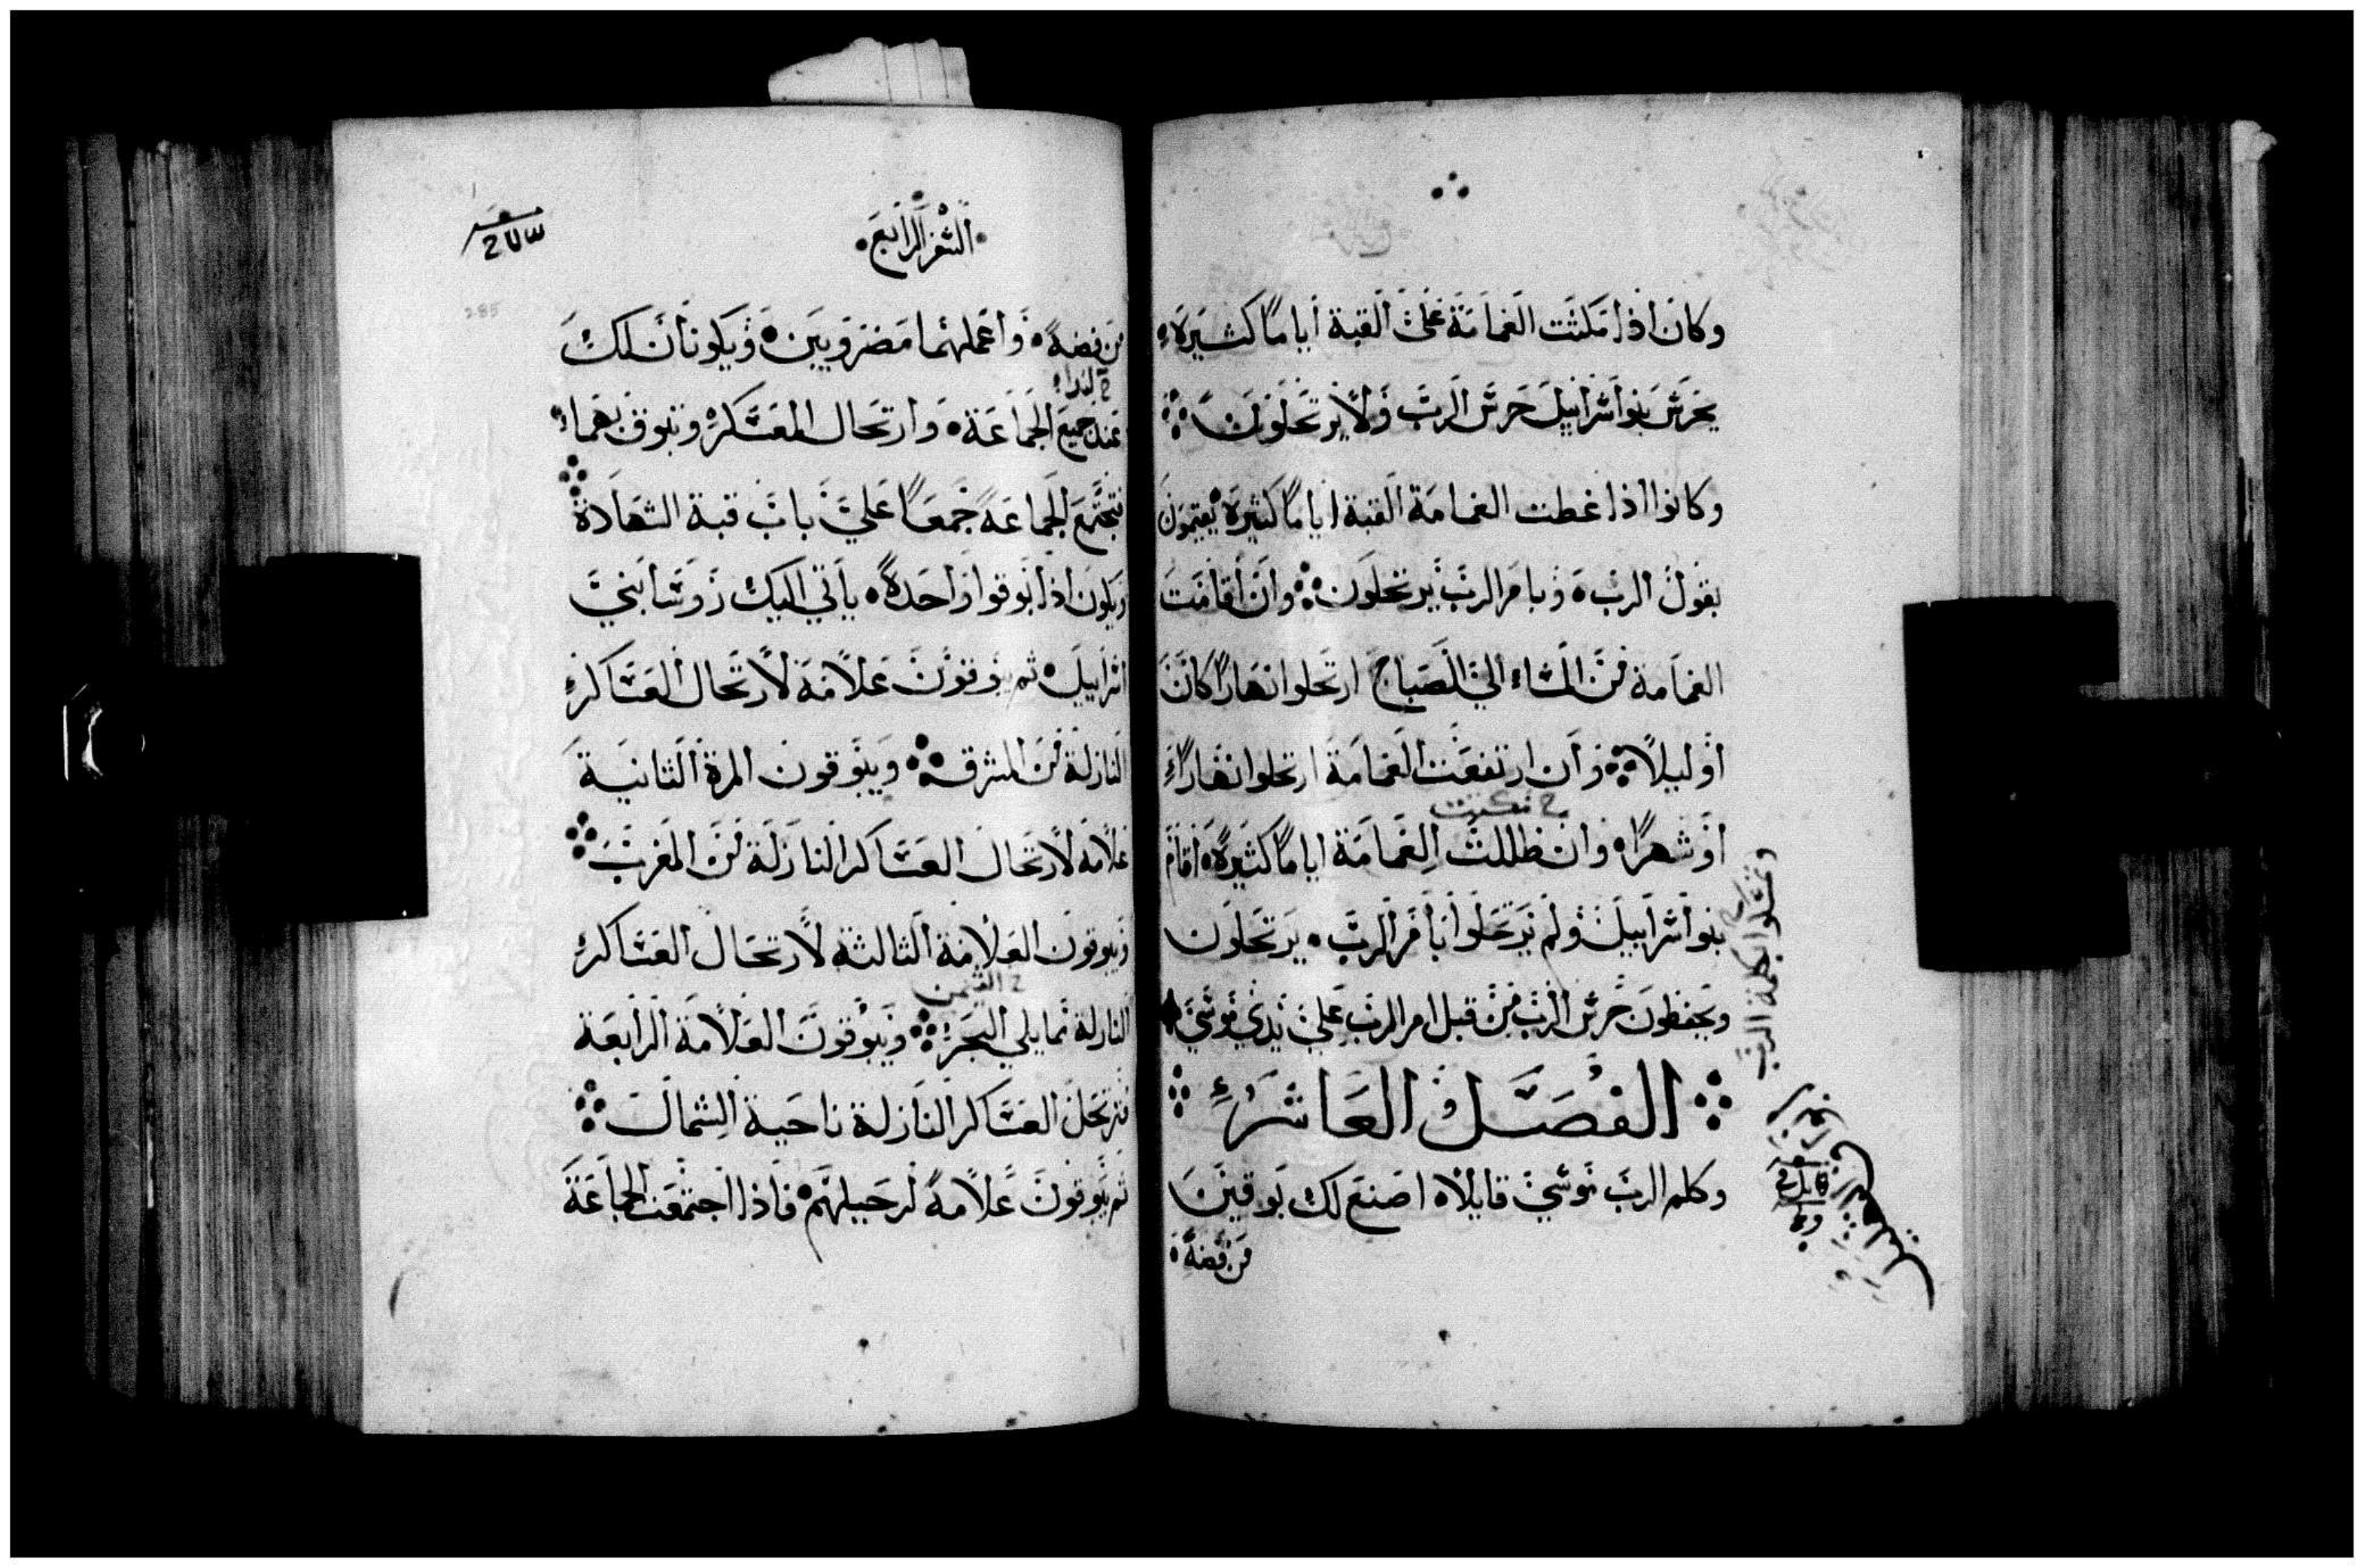 وكان اذا مكثت الغمامة على القبة اياما كثيرة
يحرس بنو اسراييل حرس الرب ولا يرتحلون
وكانوا اذا غطت الغمامة القبة اياما كثيرة يقيمون
بقول الرب وبامر الرب يرتحلون وان اقامت
الغمامة من المساء الي الصباح ارتحلوا نهارا كان
او ليلا وان ارتفعت الغمامة ارتحلوا نهارا
ح تمكثت
او شهرا وان ظللت الغمامة اياما كثيرة اقام
بنو اسراييل ولم يرتحلوا بامر الرب يرتحلون
ويحفظون حرس الرب من قبل امر الرب علي يدي موسي
الفصل العاشر
وكلم الرب موسي قايلا اصنع لك بوقين
من فضة
بكلمة الرب
السفر الرابع
285
من فضة واعملهما مضروبين ويكونان لك
ح لندا
عند جميع الجماعة وارتحال المعسكر وتبوق بهما
فتجتمع الجماعة جمعا علي باب قبة الشهادة
ويكون اذا بوقوا واحدة ياتي اليك روسا بني
اسراييل ثم يبوقون علامة لارتحال العساكر
النازلة من المشرق ويبوقون المرة الثانية
علامة لارتحال العساكر النازلة من المغرب
ويبوقون العلامة الثالثة لارتحال العساكر
ح التيمن
النازلة مما يلي البحر ويبوقون العلامة الرابعة
فترتحل العساكر النازلة ناحية الشمال
ثم يبوقون علامة لرحيلهم فاذا اجتمعت الجماعة